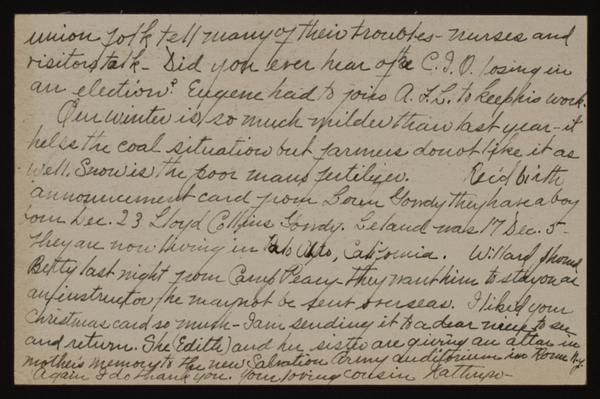 union folk tell many of their troubles - nurses and
visitors talk - Did you ever hear of the C.I.O. losing in
an election? Eugene had to join A.F.L. to keep his work.
Our winter is so much milder than last year - it
helps the coal situation but farmers do not like it as
well. Snow is the poor mans fertilizer. Rec'd birth
announcement card from Gowdy they have a boy
born Dec. 23 Lloyd Collins Gowdy. Leland was 17 Dec. 5 -
They are now living in Palo Alto, California. Willard phoned
Betty last night from Camp Peary - they want him to stay on as
an instructor, he may not be sent overseas. I liked your
Christmas card so much - I am sending it to a dear niece to see
and return. She (Edith) and her sister are giving an altar in
mother's memory to the new Salvation Army auditorium in Rome N.Y.
Again I do thank you. Your loving cousin Kathryn -